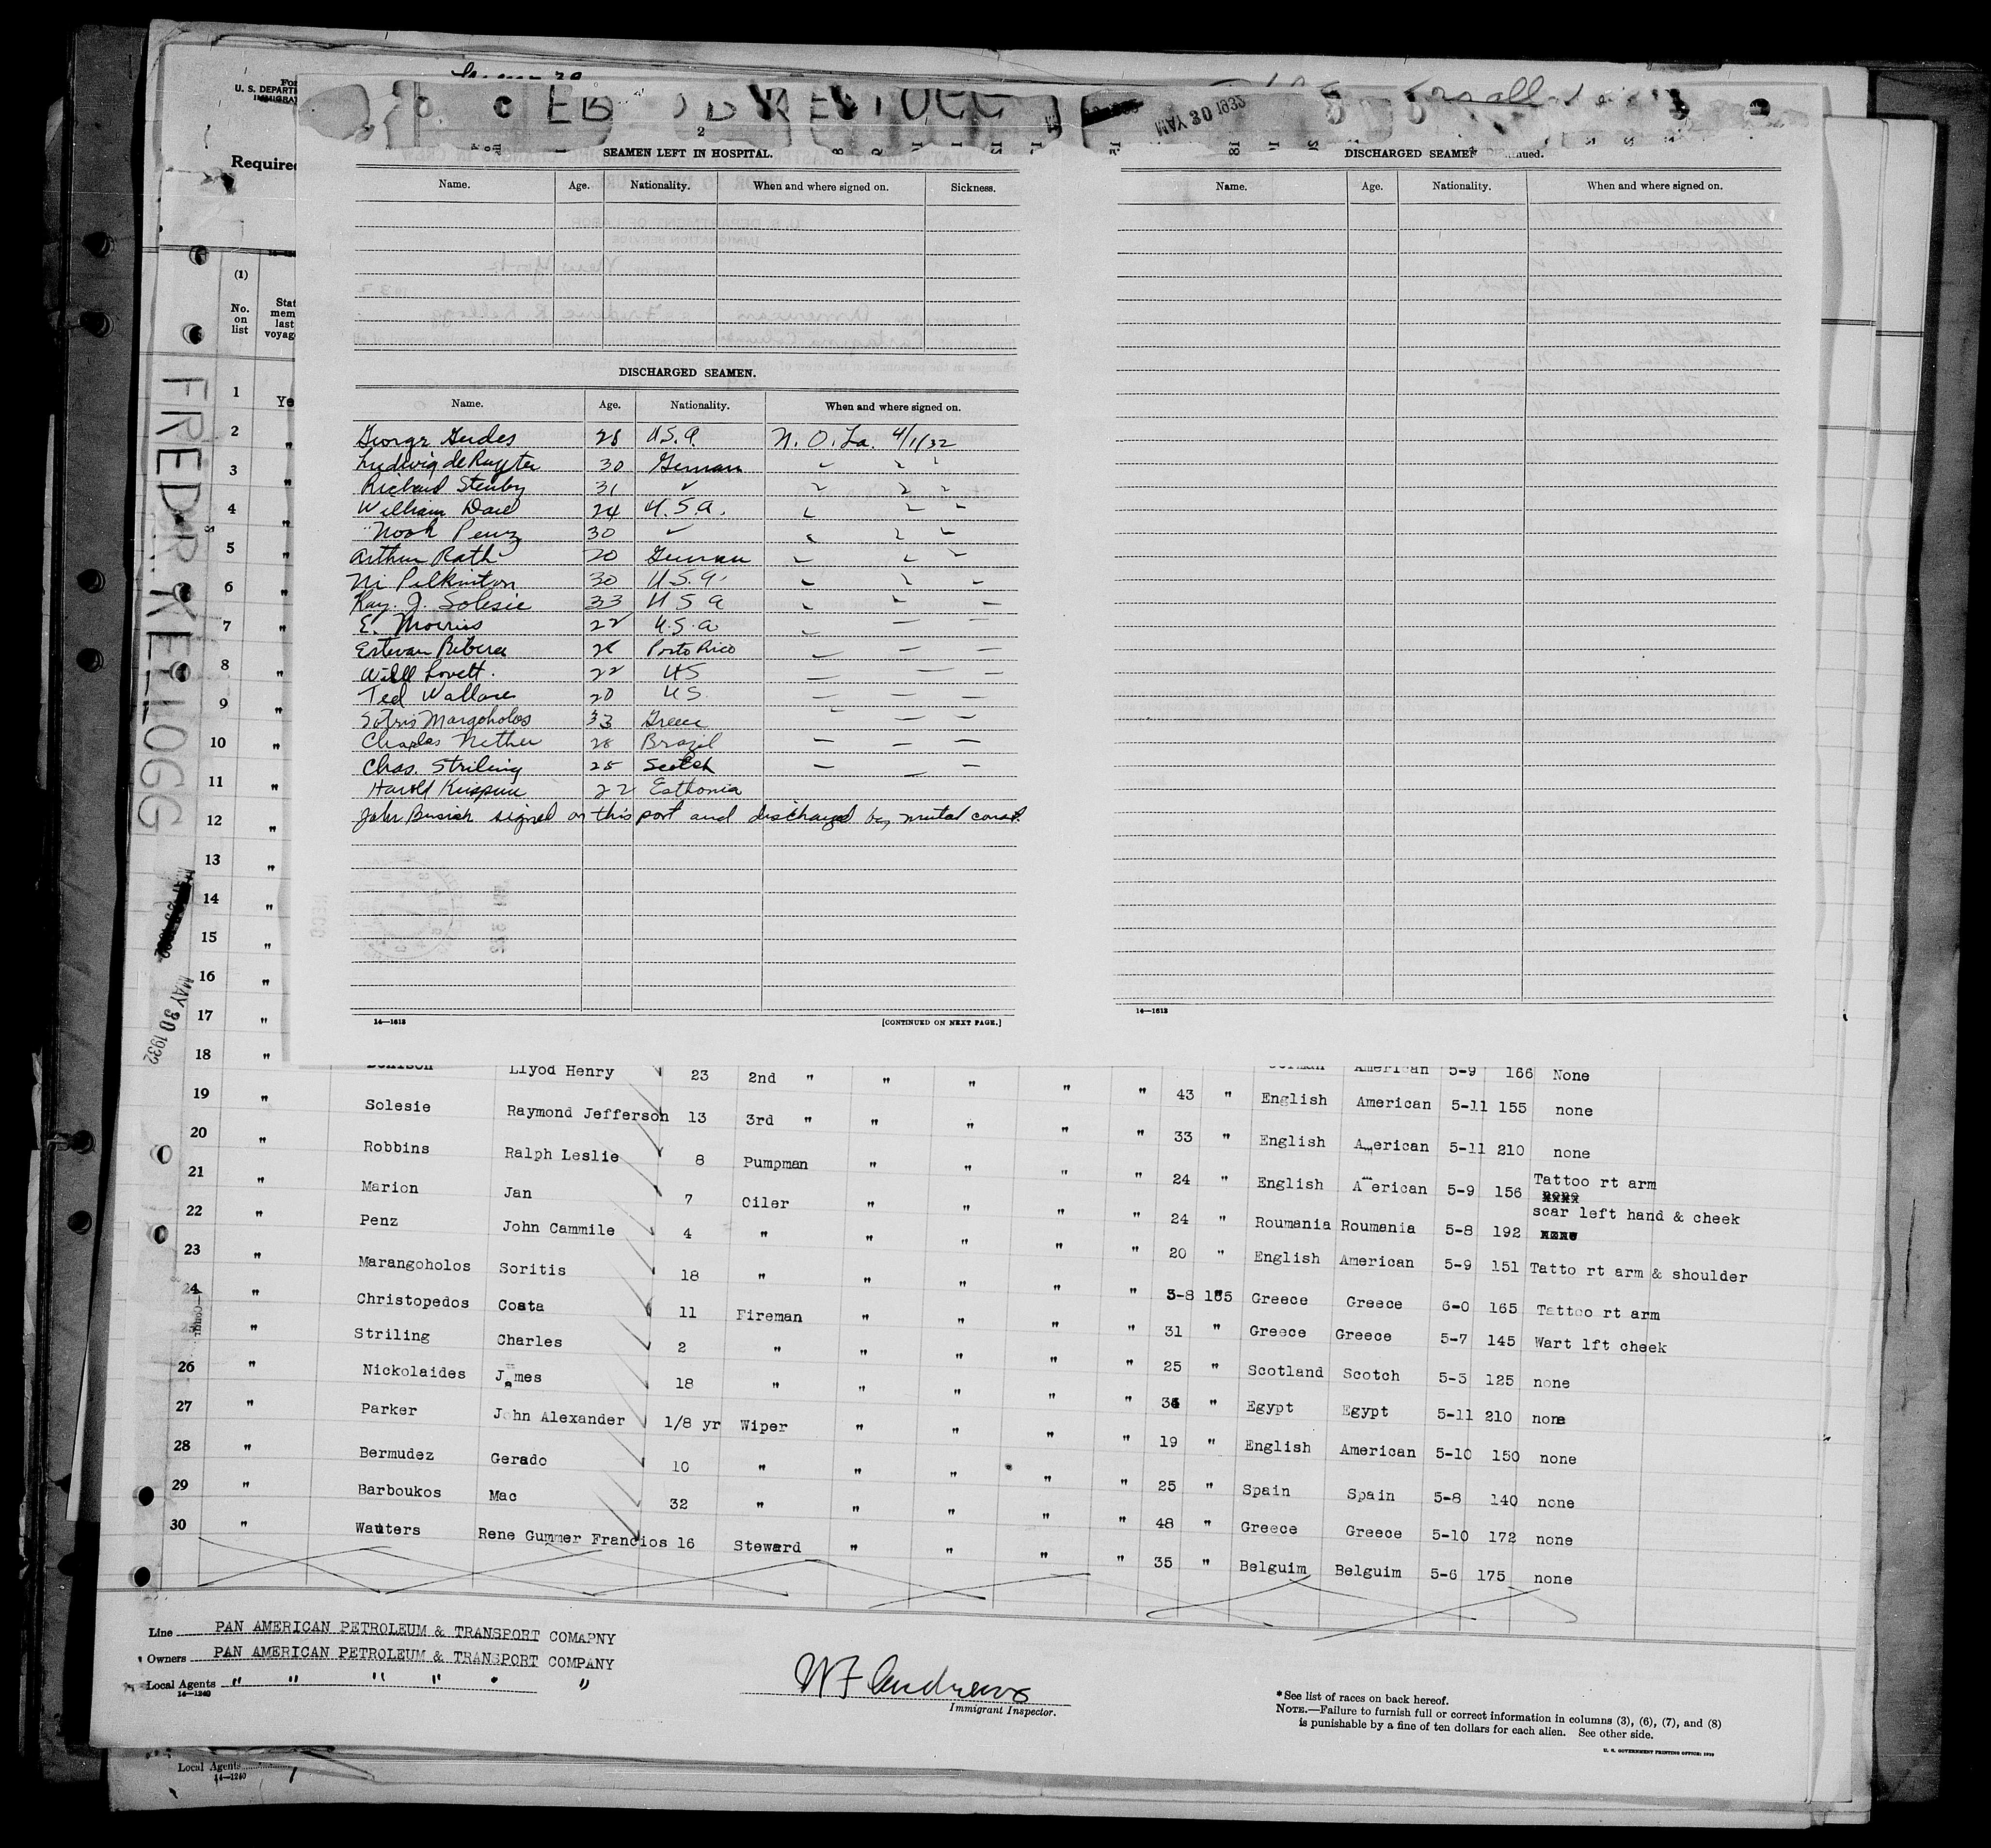 U. S. DEPARTM
IMMIGRA
Required
MAY 30 1932
2
SEAMEN LEFT IN HOSPITAL.
Name. Age. Nationality. When and where signed on. Sickness.
DISCHARGED SEAMEN.
Name. Age. Nationality. When and where signed on.
George Gerdes 28 U.S.A. N. O. La. 4/1/32
Ludwig de Ruyter 30 German
Richard Stenby 31 "
William Dave 24 U.S.A.
Noah Penz 30 "
Arthur Rath 20 German
M Pilkinton 30 U.S.A.
Ray. J. Solesie 33 U S A
E. Morriss 22 U.S.A
Estevan Ribera 28 Porto Rico
Will Lovett. 22 U S
Ted Wallace 20 U S.
Sotris Margoholos 33 Greece
Charles Nether 28 Brazil
Chas. Striling 25 Scotch
Harold 22 Esthonia
John signed on this port and discharged by mutal
14—1613 [CONTINUED ON NEXT PAGE.]
DISCHARGED SEAMEN
Name. Age. Nationality. When and where signed on.
14—1613
(1)
No. on list
FRED R. KELLOGG
MAY 30 1932
1 Ye
2 "
3 "
4 "
5 "
6 "
7 "
8 "
9 "
10 "
11 "
12 "
13 "
14 "
15 "
16 "
17 "
18 "
Llyod Henry 23 2nd " " " " " 43 " American 5-9 166 None
19 " Solesie Raymond Jefferson 13 3rd " " " " " 33 " English American 5-11 155 none
20 " Robbins Ralph Leslie 8 Pumpman " " " " 24 " English American 5-11 210 none
21 " Marion Jan 7 Oiler " " " " 24 " English American 5-9 156 Tattoo rt arm
22 " Penz John Cammile 4 " " " " " 20 " Roumania Roumania 5-8 192 scar left hand & cheek
23 " Marangoholos Soritis 18 " " " " " English American 5-9 151 Tatto rt arm & shoulder
24 " Christopedos Costa 11 Fireman " " " " 31 " Greece Greece 6-0 165 Tattoo rt arm
" Striling Charles 2 " " " " " 25 " Greece Greece 5-7 145 Wart lft cheek
26 " Nickolaides James 18 " " " " " Scotland Scotch 5-5 125 none
27 " Parker John Alexander 1/8 yr Wiper " " " " 19 " Egypt Egypt 5-11 210 none
28 " Bermudez Gerado 10 " " " " " 25 " English American 5-10 150 none
29 " Barboukos Mac 32 " " " " " 48 " Spain Spain 5-8 140 none
30 " Wauters Rene Gummer Francios 16 Steward " " " " 35 " Greece Greece 5-10 172 none
Belguim Belguim 5-6 175 none
Line PAN AMERICAN PETROLEUM & TRANSPORT COMAPNY
Owners PAN AMERICAN PETROLEUM & TRANSPORT COMPANY
Local Agents " " " " " "
14—1240
W F Andrews
Immigrant Inspector.
*See list of races on back hereof.
NOTE.—Failure to furnish full or correct information in columns (3), (6), (7), and (8)
is punishable by a fine of ten dollars for each alien. See other side.
U. S. GOVERNMENT PRINTING OFFICE: 1929
Local Agents
14—1240